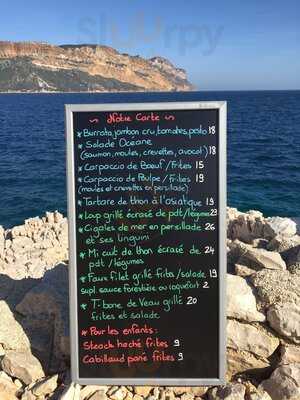 ~ Notre Carte ~
* Burrata, jambon cru, tomates, pesto 18
* Salade Océane
(saumon, moules, crevettes, avocat) 18
* Carpaccio de Boeuf / Frites 15
* Carpaccio de Poulpe / Frites 19
(moules et crevettes en persillade)
* Tartare de thon à l'asiatique 19
* Loup grillé écrasé de pdt /légumes 23
* Cigales de mer en persillade 26
et ses linguini
* Mi cuit de thon écrasé de 24
pdt /légumes
* Faux filet grillé frits/salade 19
supl. sauce forestière ou roquefort 2
* T-bone de Veau grillé 20
frites et salade
* Pour les enfants:
Steack haché frites 9
Cabillaud pané frites 9